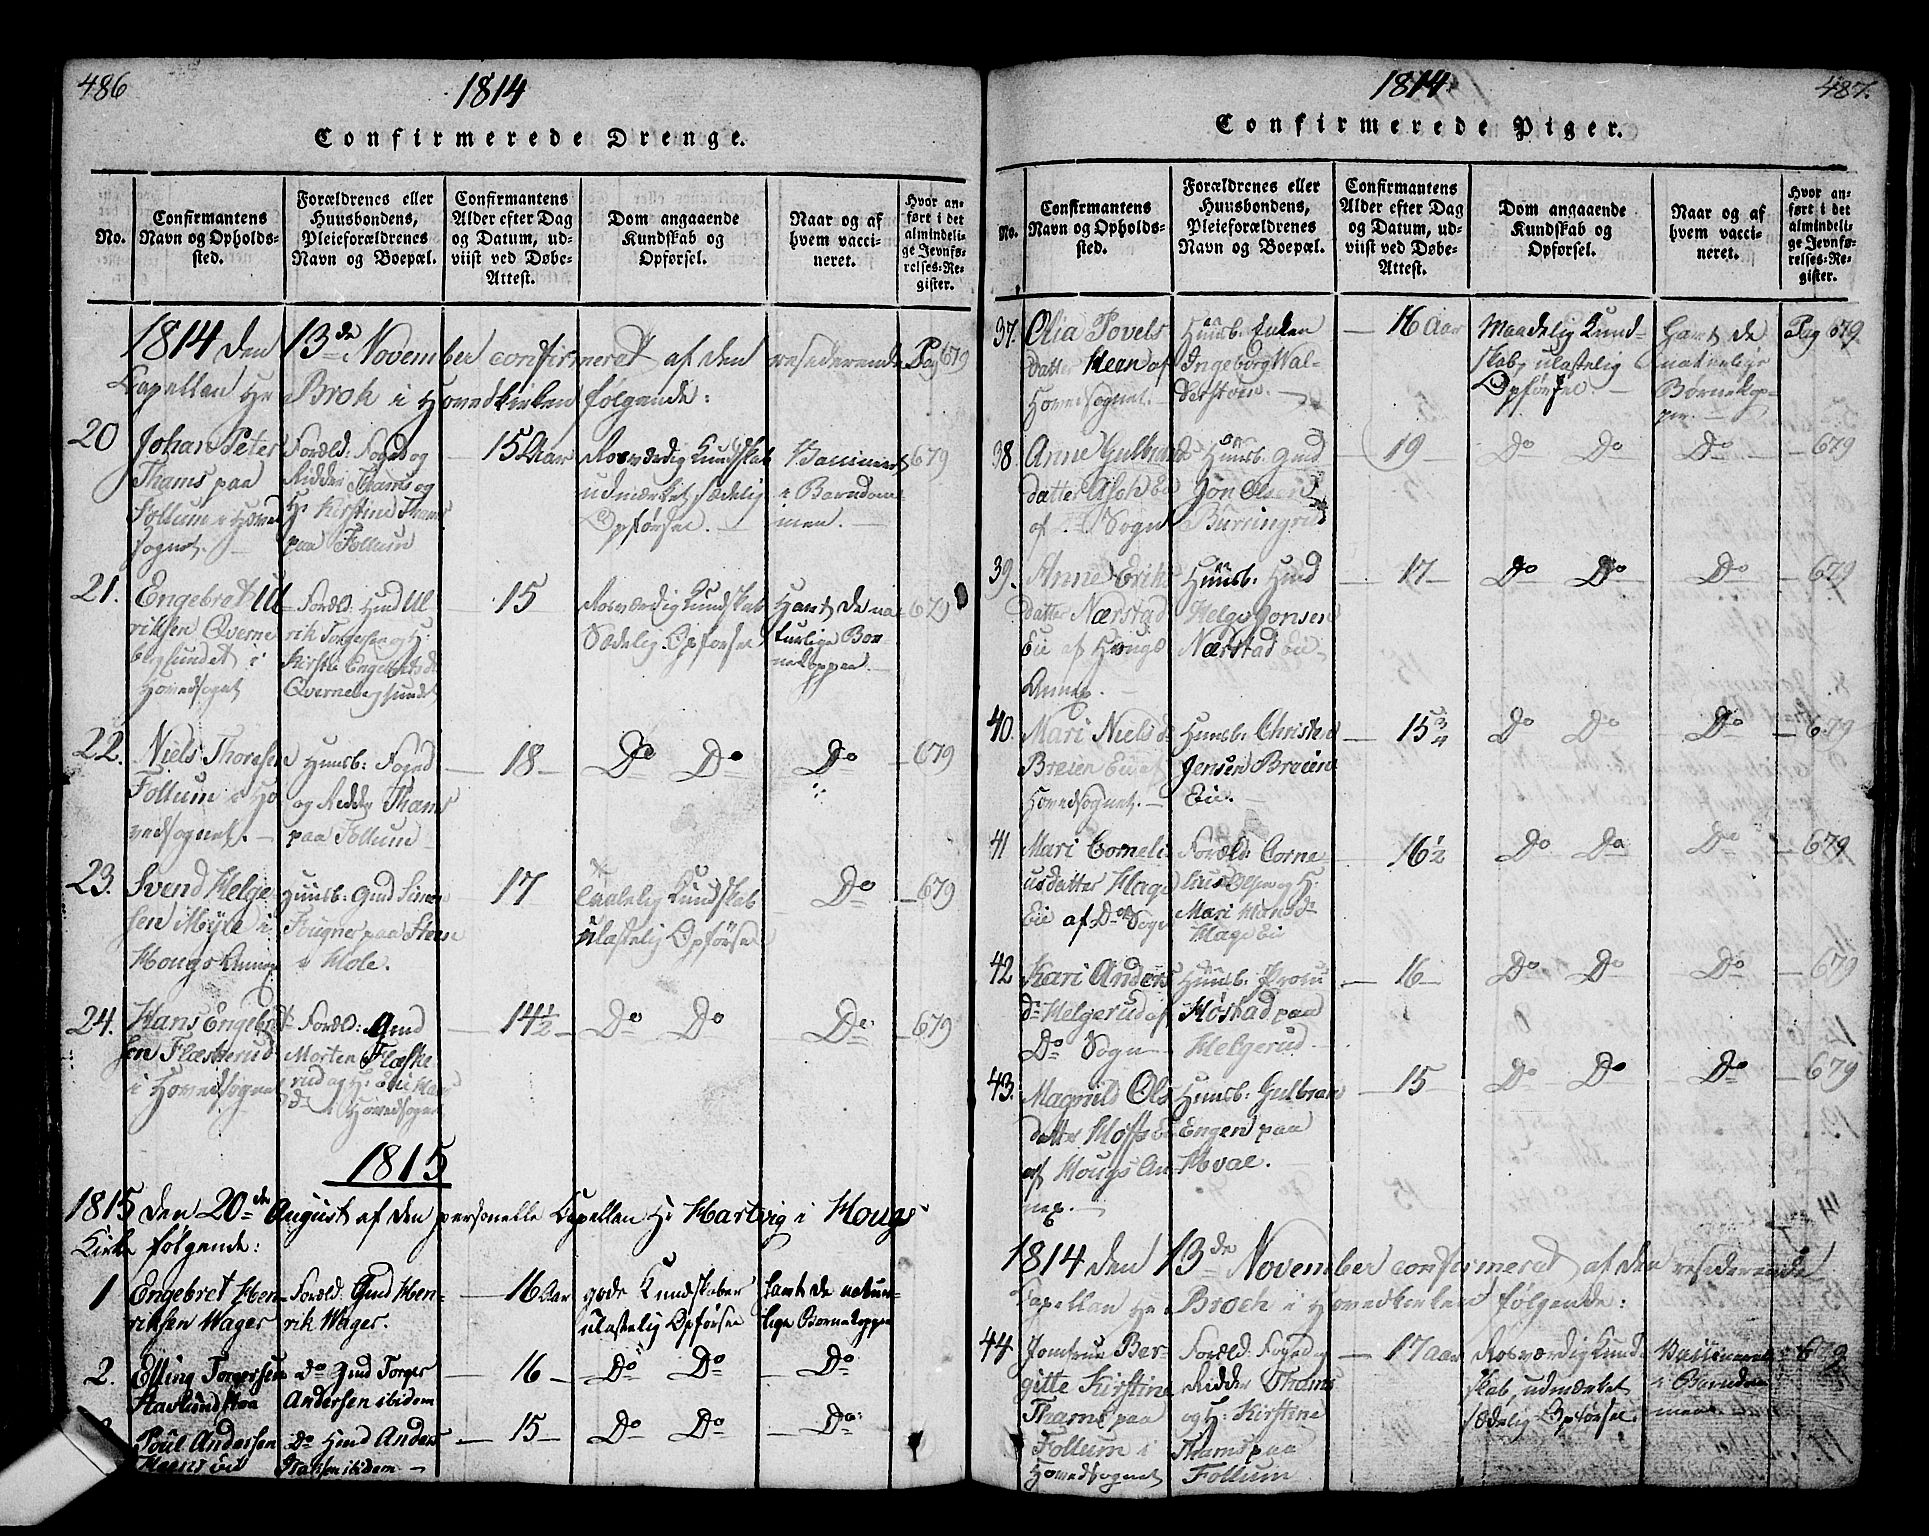 486
1814
Confirmerede Drenge.
No.
Confirmantens
Navn og Opholds-
sted.
Forældrenes eller
Huusbondens,
Pleieforældrenes
Navn og Boepæl.
Confirmantens
Alder efter Dag
og Datum, ud-
viist ved Døbe-
Attest.
Dom angaaende
Kundskab og
Opførsel.
Naar og af
hvem vacci-
neret.
Hvor an-
ført i det
almindeli-
ge Jevnfø-
relses-Re-
gister.
1814 den 13de November confirmeret af den resederende Pag 679
Capellan Hr Brok i Hovedkirken følgende:
20
Johan Peter
Thams paa
Follum i Hoved
sognet.
Foræld: Foged og
Ridder Thams og
H: Kirstine Thams
paa Follum
15 Aar
Rosværdig Kundskab
udmærket sædelig
Opførsel.
Vaccineret
i Barndom
men.
679
21.
Engebret Ul
riksen Qverne
bergsundet i
Hovedsognet
Foræld: Gmd Ul
rik Torgersen og H:
Kirsti Engebretsd
Qvernebergsundet
15
Rosværdig Kundskab
Sædelig Opførsel
Havt de na
turlige Bør
nekopper.
679
22.
Niels Thoresen
Follum i Ho
vedsognet.
Huusb: Foged
og Ridder Thams
paa Follum
18
Do Do
Do
679
23.
Svend Helge
sen Myre i
Hougs Annex
Huusb: Gmd Simen
Fougner paa Steen
i Hole.
17
Taalelig Kundskab
ulastelig Opførsel
Do
679
24.
Hans Engebret
sen Flaskerud
i Hovedsognet
Foræld: Gmd
Morten Flaske
rud og H: Kari Hans
d i Hovedsognet
14 1/2
Do Do
Do
679
1815
1815 den 20de August af den personelle Capellan Hr Hartvig i Hougs
Kirke følgende:
1
Engebret Hen-
riksen Wager
Foræld: Gmd Hen-
rik Wager.
16 Aar
gode Kundskaber
ulastelig Opførsel
havt de natur-
lige Børnekopper
2.
Elling Torgersen
Do Gmd Torger
Andersen ibidem
16
Do Do
Do
3
Poul Andersen
Do Huusmd Anders
Isaksen ibidem
15
Do Do
Do
1814
487.
Confirmerede Piger.
No.
Confirmantens
Navn og Opholds-
sted.
Forældrenes eller
Huusbondens,
Pleieforældrenes
Navn og Boepæl.
Confirmantens
Alder efter Dag
og Datum, ud-
viist ved Døbe-
Attest.
Dom angaaende
Kundskab og
Opførsel.
Naar og af
hvem vacci-
neret.
Hvor an-
ført i det
almindeli-
ge Jevnfø-
relses-Re-
gister.
37.
Olia Povels
datter Heen af
Hovedsognet.
Huusb: Enken
Ingeborg Wal-
dersteen.
16 Aar
Maadelig Kund-
skab, ulastelig
Opførsel.
Havt de
naturlige
Børnekop-
per.
Pag 679
38
Anne Gulbrands
datter Ask Eie
af Do Sogn
Huusb: Gmd
Jon Olsen
Burringrud
19
Do Do
Do
679
39.
Anne Eriks
datter Nærstad
Eie af Hougs
Annex.
Huusb: Gmd
Helge Jonsen
Nærstad Eie
17
Do Do
Do
679
40.
Mari Nielsd
Breien Eie af
Hovedsognet.
Huusb: Christen
Jensen Breien
Eie.
15 3/4
Do Do
Do
679
41
Mari Corneli
usdatter Hage
Eie af Do Sogn
Foræld: Corne
lius Olsen og H:
Mari Hansd
Hage Eie
16 1/2
Do Do
Do
679
42
Kari Anders
d Helgerud af
Do Sogn
Huusb: Provst
Høstad paa
Helgerud
16
Do Do
Do
679
43.
Magnild Ols
datter Hoffs Eie
af Hougs An
nex.
Huusb: Gulbran
Engen paa
Hval.
15
Do Do
Do
679
1814 den 13de November confirmeret af den resederende
Capellan Hr Broch i Hovedkirken følgende:
44
Jomfrue Ber-
gitte Kirstine
Thams paa
Follum i
Hovedsognet
Foræld: Foged og
Ridder Thams
og H: Kirstine
Thams paa
Follum
17 Aar
Rosværdig Kund
skab, udmærket
sædelig Opførsel.
Vaccineret
i Barndom
men.
679